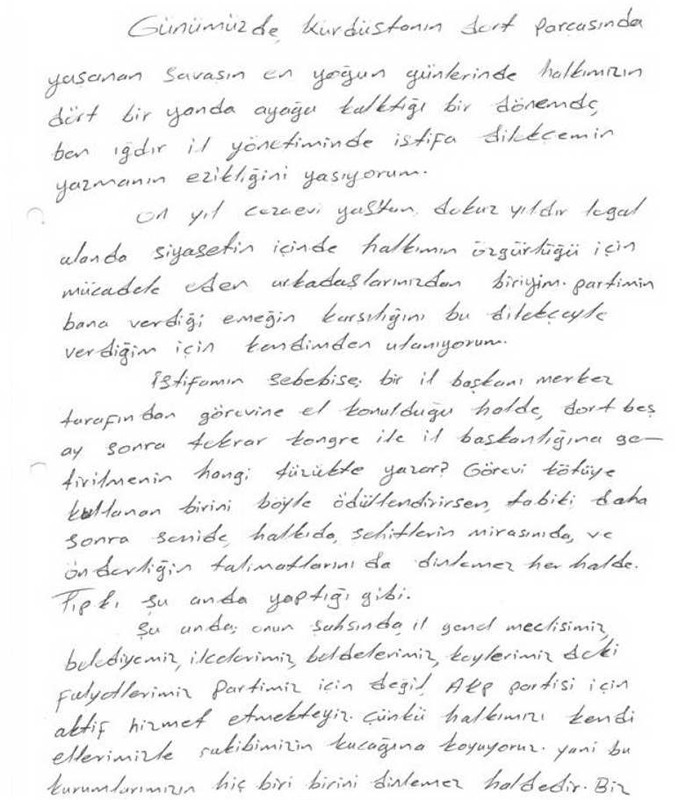 Günümüzde, Kürdüstanın dört parçasında
yaşanan savaşın en yoğun günlerinde halkımızın
dört bir yanda ayağa kalktığı bir dönemde,
ben ığdır il yönetiminde istifa dilekçemin
yazmanın ezikliğini yaşıyorum.
On yıl cezaevi yattan, dokuz yıldır legal
alanda siyasetin içinde halkımın özgürlüğü için
mücadele eden arkadaşlarınızdan biriyim. partimin
bana verdiği emeğin karşılığını bu dilekçeyle
verdiğim için kendimden utanıyorum.
İstifamın sebebise; bir il başkanı merkez
tarafından görevine el konulduğu halde, dört beş
ay sonra tekrar kongre ile il başkanlığına ge-
tirilmenin hangi tüzükte yazar? Görevi kötüye
kullanan birini böyle ödüllendirirsen, tabiki daha
sonra senide, halkıda, şehitlerin mirasınıda, ve
önderliğin talimatlarını da dinlemez her halde.
Tıpkı şu anda yaptığı gibi.
Şu anda; onun şahsında il genel meclisimiz,
belediyemiz, ilçelerimiz, beldelerimiz, köylerimiz deki
Partimiz için değil, Akp partisi için
aktif hizmet etmekteyiz. Çünkü halkımızı kendi
ellerimizle rakibimizin kucağına koyuyoruz. yani bu
kurumlarımızın hiç biri birini dinlemez haldedir. Biz